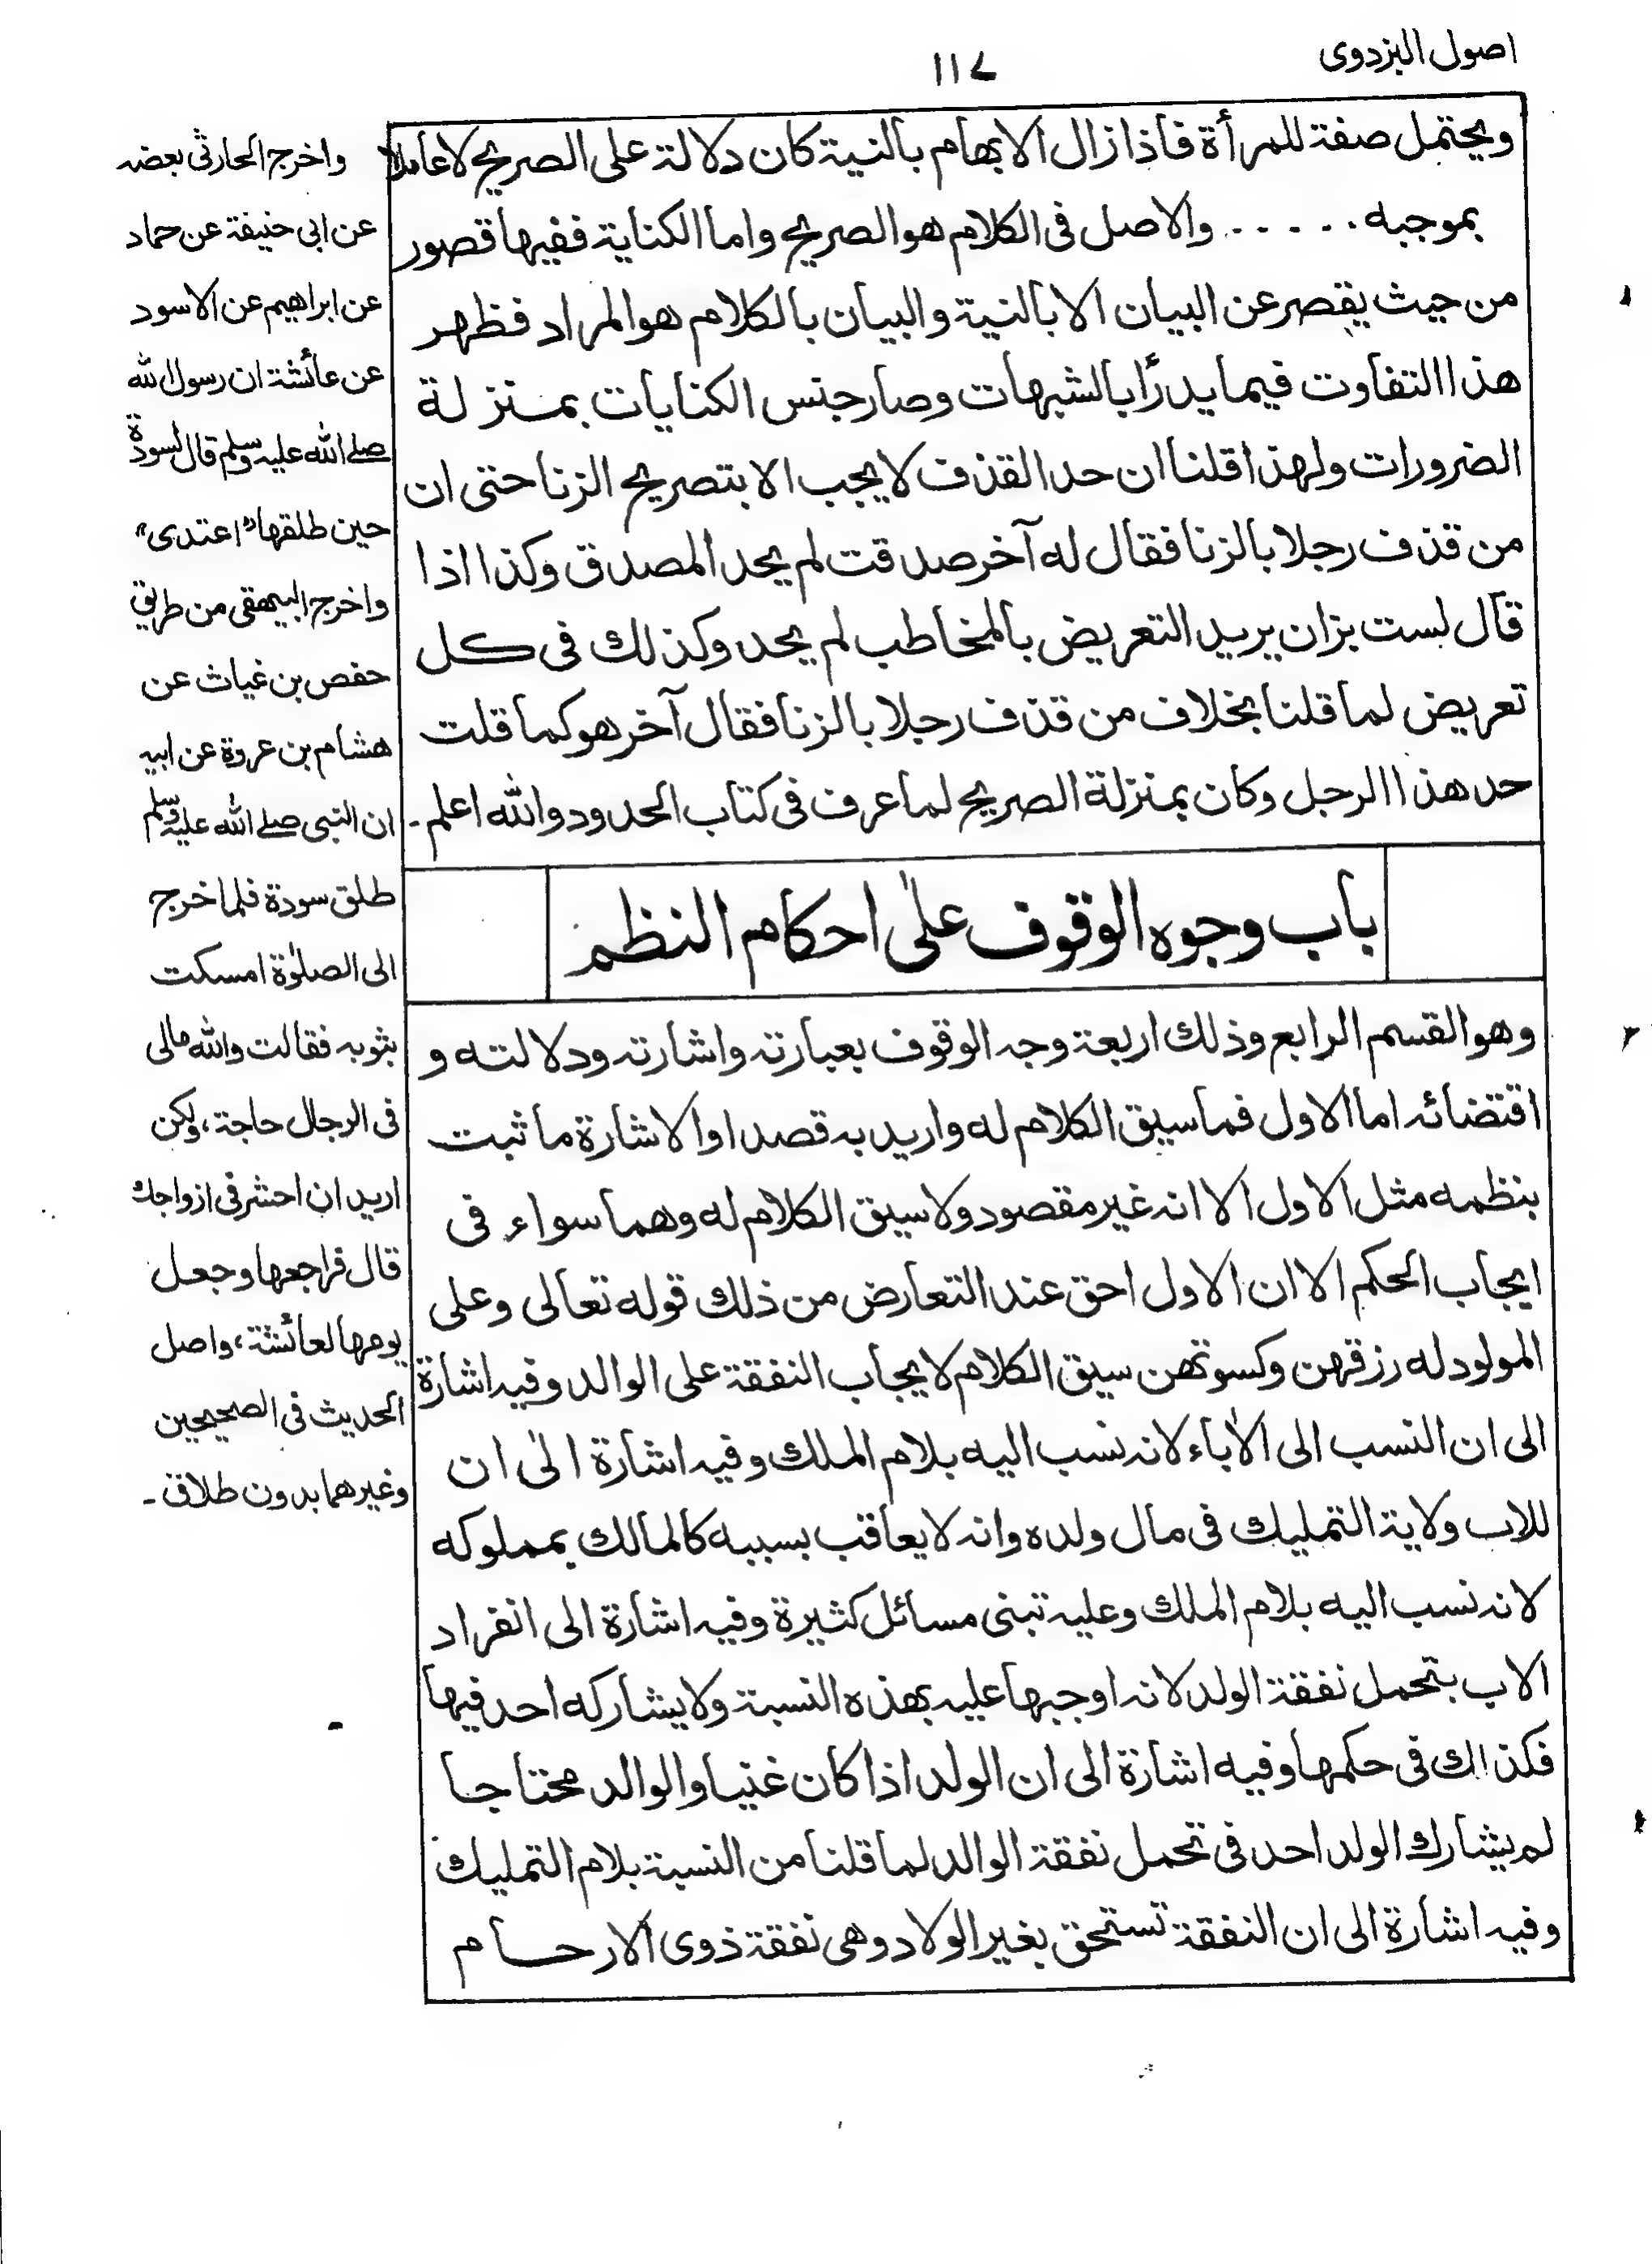 اصول البزدوی
١١٧
ويحتمل صفة للمرأة فاذا زال الابهام بالنية كان دلالة على الصريح لاعاملا
بموجبه . . . . . والاصل فى الكلام هو الصريح واما الكناية ففيها قصور
من حيث يقصر عن البيان الا بالنية والبيان بالكلام هو المراد فظهر
هذا التفاوت فيما يدرأ بالشبهات وصار جنس الكنايات بمنزلة
الضرورات ولهذا قلنا ان حد القذف لا يجب الا بتصريح الزنا حتى ان
من قذف رجلا بالزنا فقال له آخر صدقت لم يحد المصدق وكذا اذا
قال لست بزان يريد التعريض بالمخاطب لم يحد وكذلك فى كل
تعريض لما قلنا بخلاف من قذف رجلا بالزنا فقال آخر هو كما قلت
حد هذا الرجل وكان بمنزلة الصريح لما عرف فى كتاب الحدود والله اعلم -
باب وجوه الوقوف علٰى احكام النظم
وهو القسم الرابع وذلك اربعة وجه الوقوف بعبارته واشارته ودلالته و
اقتضائه اما الاول فما سيق الكلام له واريد به قصدا والاشارة ما ثبت
بنظمه مثل الاول الا انه غير مقصود ولا سيق الكلام له وهما سواء فى
ايجاب الحكم الا ان الاول احق عند التعارض من ذلك قوله تعالى وعلى
المولود له رزقهن وكسوتهن سيق الكلام لايجاب النفقة على الوالد وفيه اشارة
الى ان النسب الى الاٰباء لانه نسب اليه بلام الملك وفيه اشارة الٰى ان
للاب ولاية التمليك فى مال ولده وانه لا يعاقب بسببه كالمالك بمملوكه
لانه نسب اليه بلام الملك وعليه تبنى مسائل كثيرة وفيه اشارة الى انفراد
الاب بتحمل نفقة الولد لانه اوجبها عليه بهذه النسبة ولا يشاركه احد فيها
فكذلك فى حكمها وفيه اشارة الى ان الولد اذا كان غنيا والوالد محتاجا
لم يشارك الولد احد فى تحمل نفقة الوالد لما قلنا من النسبة بلام التمليك
وفيه اشارة الى ان النفقة تستحق بغير الولاد وهى نفقة ذوى الارحام
واخرج الحارثى بعضه
عن ابى حنيفة عن حماد
عن ابراهيم عن الاسود
عن عائشة ان رسول الله
صلے الله عليه وسلم قال لسودة
حين طلقها "اعتدى"
واخرج البيهقى من طريق
حفص بن غياث عن
هشام بن عروة عن ابيه
ان النبى صلے الله عليه وسلم
طلق سودة فلما خرج
الى الصلوٰة امسكت
بثوبه فقالت والله مالى
فى الرجال حاجة، ولكن
اريد ان احشر فى ازواجك
قال فراجعها وجعل
يومها لعائشة، واصل
الحديث فى الصحيحين
وغيرهما بدون طلاق -